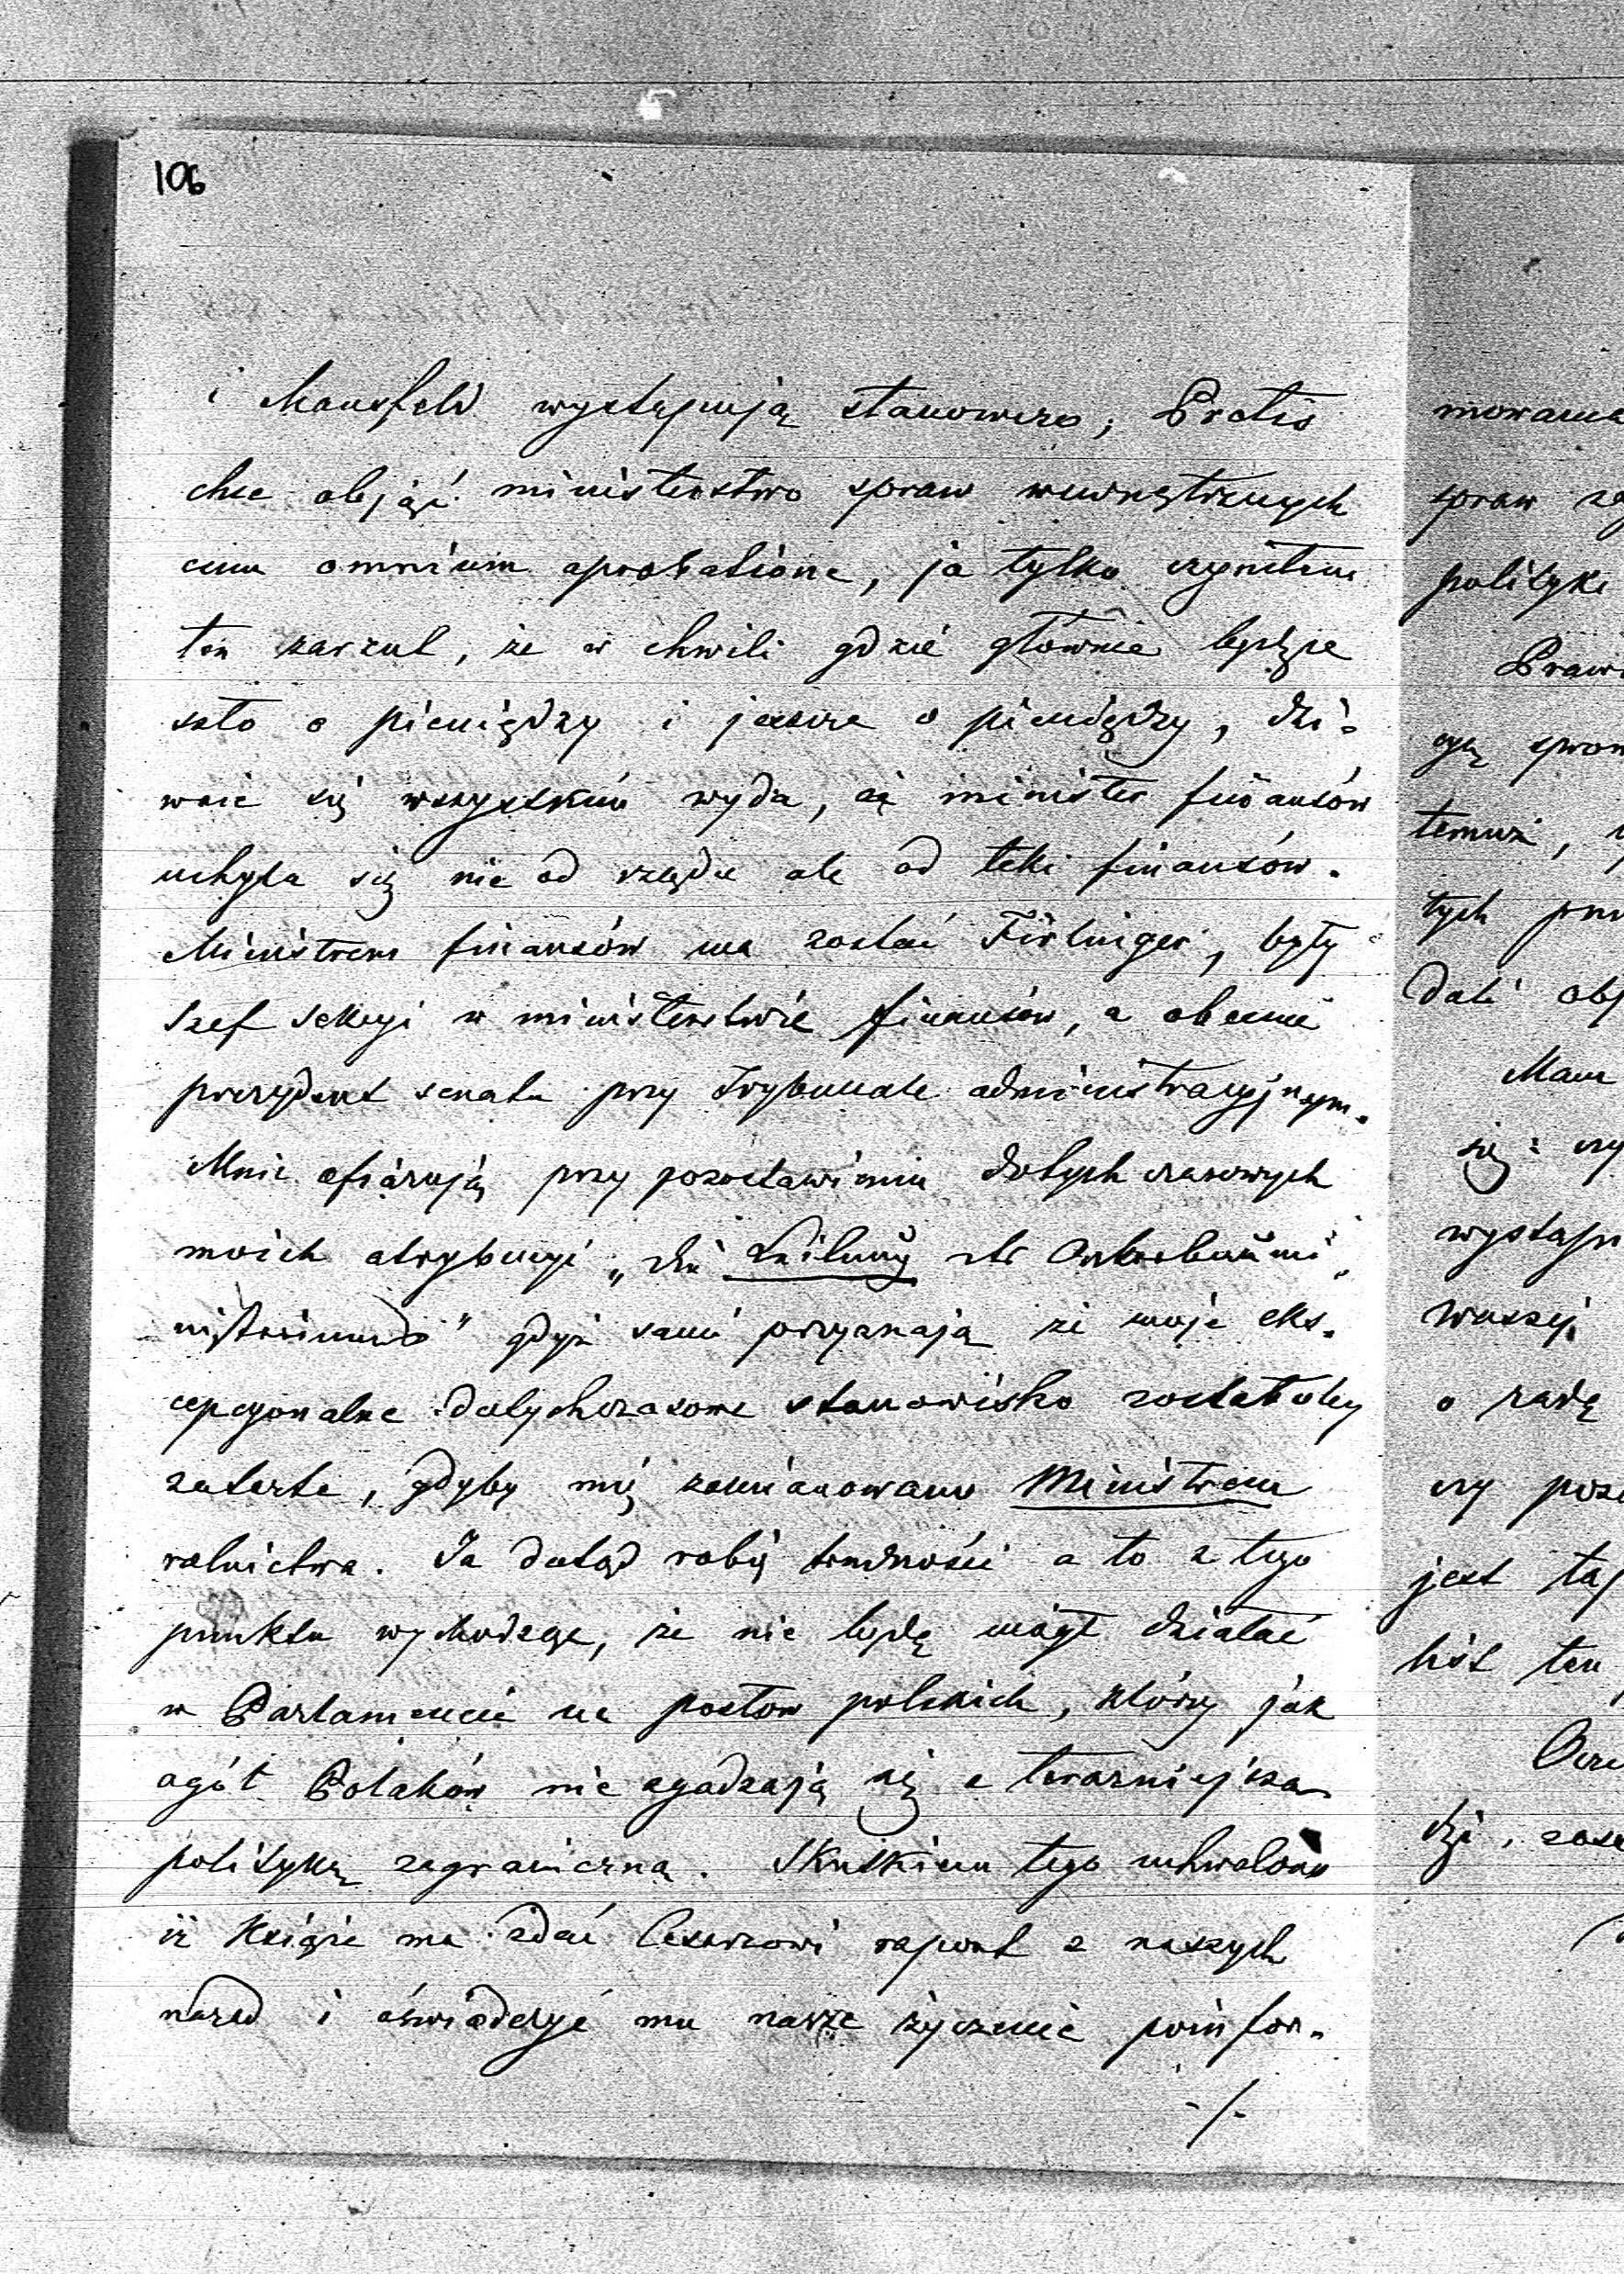 106
i Mansfeld występują stanowczo; Pretis
chce objąć ministerstwo spraw wewnętrznych
cum omnium aprobatione, ja tylko czyniłem
ten zarzut, że w chwili gdzie głównie będzie
szło o pieniędzy i jeszcze o pieniędzy, dzi-
wnie się wszystkim wyda, iż minister finansów
uchyla się nie od rządu ale od teki finansów.
Ministrem finansów ma zostać Fierlinger, były
szef sekcyi w ministerstwie finansów, a obecnie
prezydent senatu przy Trybunale administracyjnym.
Mnie ofiarują przy pozostawieniu dotychczasowych
moich atrybucyi „die Leitung des Ackerbaumi-
nisteriums" gdyż sami przyznają że moje eks-
cepcyonalne dotychczasowe stanowisko zostałoby
zatarte, gdyby mię zamianowano Ministrem
rolnictwa. Ja dotąd robię trudności a to z tego
punktu wychodząc, że nie będę mógł działać
w Parlamencie na posłów polskich, którzy jak
ogół Polaków nie zgadzają się z teraźniejszą
polityką zagraniczną. Skutkiem tego uchwalono
iż Książe ma zdać Cesarzowi raport z naszych
narad i oświadczyć mu nasze życzenie poinfor-
./.
mowania
spraw za
polityki
Prawi
cyą
temuż,
tych
dali obj
Mam
się: czy
wystąpi
waszej
o radę
czy poz
jest ta
list ten
dzi,